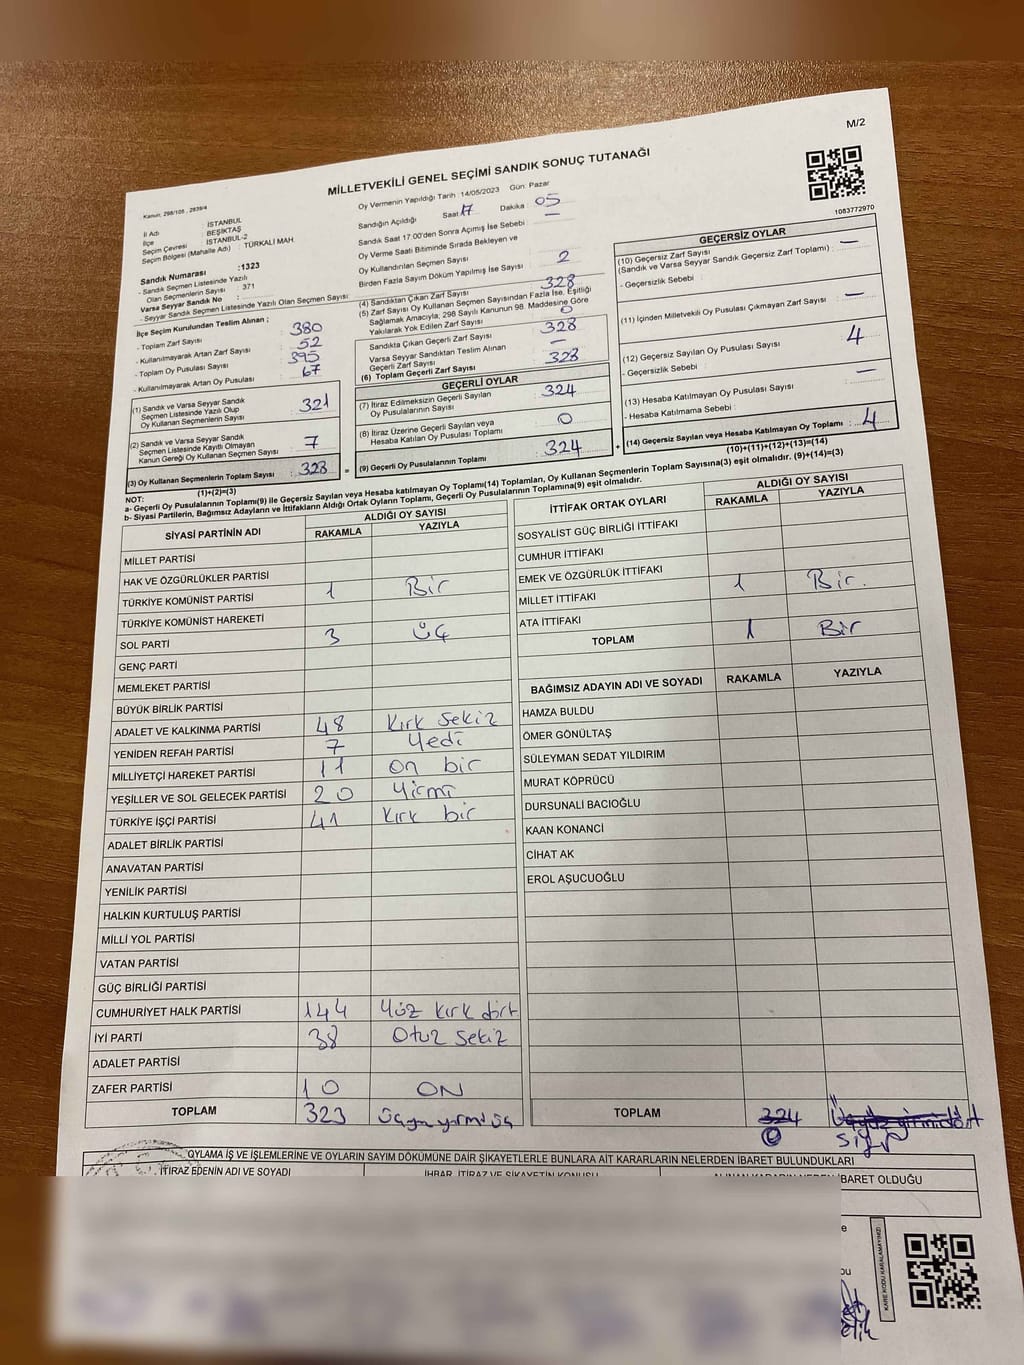 M/2
MİLLETVEKİLİ GENEL SEÇİMİ SANDIK SONUÇ TUTANAĞI
Kanun: 298/105 , 2839/4
İl Adı : İSTANBUL
İlçe : BEŞİKTAŞ
Seçim Çevresi : İSTANBUL-2
Seçim Bölgesi (Mahalle Adı) : TÜRKALİ MAH.
Sandık Numarası :1323
- Sandık Seçmen Listesinde Yazılı
Olan Seçmenlerin Sayısı : 371
Varsa Seyyar Sandık No :
- Seyyar Sandık Seçmen Listesinde Yazılı Olan Seçmen Sayısı :
İlçe Seçim Kurulundan Teslim Alınan ;
- Toplam Zarf Sayısı : 380
- Kullanılmayarak Artan Zarf Sayısı : 52
- Toplam Oy Pusulası Sayısı : 395
- Kullanılmayarak Artan Oy Pusulası : 67
(1) Sandık ve Varsa Seyyar Sandık
Seçmen Listesinde Yazılı Olup
Oy Kullanan Seçmenlerin Sayısı : 321
(2) Sandık ve Varsa Seyyar Sandık
Seçmen Listesinde Kayıtlı Olmayan
Kanun Gereği Oy Kullanan Seçmen Sayısı : 7
(3) Oy Kullanan Seçmenlerin Toplam Sayısı : 328
(1)+(2)=(3)
Oy Vermenin Yapıldığı Tarih : 14/05/2023 Gün: Pazar
Sandığın Açıldığı Saat: 17 Dakika : 05
Sandık Saat 17:00'den Sonra Açımış İse Sebebi : —
Oy Verme Saati Bitiminde Sırada Bekleyen ve
Oy Kullandırılan Seçmen Sayısı : 2
Birden Fazla Sayım Döküm Yapılmış İse Sayısı :
(4) Sandıktan Çıkan Zarf Sayısı : 328
(5) Zarf Sayısı Oy Kullanan Seçmen Sayısından Fazla İse, Eşitliği
Sağlamak Amacıyla, 298 Sayılı Kanunun 98. Maddesine Göre
Yakılarak Yok Edilen Zarf Sayısı : 0
Sandıkta Çıkan Geçerli Zarf Sayısı : 328
Varsa Seyyar Sandıktan Teslim Alınan
Geçerli Zarf Sayısı : —
(6) Toplam Geçerli Zarf Sayısı : 328
GEÇERLİ OYLAR
(7) İtiraz Edilmeksizin Geçerli Sayılan
Oy Pusulalarının Sayısı : 324
(8) İtiraz Üzerine Geçerli Sayılan veya
Hesaba Katılan Oy Pusulası Toplamı : 0
(9) Geçerli Oy Pusulalarının Toplamı : 324
1083772970
GEÇERSİZ OYLAR
(10) Geçersiz Zarf Sayısı
(Sandık ve Varsa Seyyar Sandık Geçersiz Zarf Toplamı) : —
- Geçersizlik Sebebi :
(11) İçinden Milletvekili Oy Pusulası Çıkmayan Zarf Sayısı : —
(12) Geçersiz Sayılan Oy Pusulası Sayısı : 4
- Geçersizlik Sebebi :
(13) Hesaba Katılmayan Oy Pusulası Sayısı : —
- Hesaba Katılmama Sebebi :
(14) Geçersiz Sayılan veya Hesaba Katılmayan Oy Toplamı : 4
(10)+(11)+(12)+(13)=(14)
NOT:
a- Geçerli Oy Pusulalarının Toplamı(9) ile Geçersiz Sayılan veya Hesaba katılmayan Oy Toplamı(14) Toplamları, Oy Kullanan Seçmenlerin Toplam Sayısına(3) eşit olmalıdır. (9)+(14)=(3)
b- Siyasi Partilerin, Bağımsız Adayların ve İttifakların Aldığı Ortak Oyların Toplamı, Geçerli Oy Pusulalarının Toplamına(9) eşit olmalıdır.
SİYASİ PARTİNİN ADI ALDIĞI OY SAYISI
RAKAMLA YAZIYLA
MİLLET PARTİSİ
HAK VE ÖZGÜRLÜKLER PARTİSİ
TÜRKİYE KOMÜNİST PARTİSİ 1 Bir
TÜRKİYE KOMÜNİST HAREKETİ
SOL PARTİ 3 üç
GENÇ PARTİ
MEMLEKET PARTİSİ
BÜYÜK BİRLİK PARTİSİ
ADALET VE KALKINMA PARTİSİ 48 Kırk Sekiz
YENİDEN REFAH PARTİSİ 7 Yedi
MİLLİYETÇİ HAREKET PARTİSİ 11 on bir
YEŞİLLER VE SOL GELECEK PARTİSİ 20 Yirmi
TÜRKİYE İŞÇİ PARTİSİ 41 Kırk bir
ADALET BİRLİK PARTİSİ
ANAVATAN PARTİSİ
YENİLİK PARTİSİ
HALKIN KURTULUŞ PARTİSİ
MİLLİ YOL PARTİSİ
VATAN PARTİSİ
GÜÇ BİRLİĞİ PARTİSİ
CUMHURİYET HALK PARTİSİ 144 Yüz Kırk dört
İYİ PARTİ 38 Otuz Sekiz
ADALET PARTİSİ
ZAFER PARTİSİ 10 ON
TOPLAM 323 üçyüzyirmi üç
İTTİFAK ORTAK OYLARI ALDIĞI OY SAYISI
RAKAMLA YAZIYLA
SOSYALİST GÜÇ BİRLİĞİ İTTİFAKI
CUMHUR İTTİFAKI
EMEK VE ÖZGÜRLÜK İTTİFAKI
MİLLET İTTİFAKI 1 Bir.
ATA İTTİFAKI
TOPLAM 1 Bir
BAĞIMSIZ ADAYIN ADI VE SOYADI RAKAMLA YAZIYLA
HAMZA BULDU
ÖMER GÖNÜLTAŞ
SÜLEYMAN SEDAT YILDIRIM
MURAT KÖPRÜCÜ
DURSUNALİ BACIOĞLU
KAAN KONANCİ
CİHAT AK
EROL AŞUCUOĞLU
TOPLAM 324 Üçyüz yirmidört
0 Sıfır
OYLAMA İŞ VE İŞLEMLERİNE VE OYLARIN SAYIM DÖKÜMÜNE DAİR ŞİKAYETLERLE BUNLARA AİT KARARLARIN NELERDEN İBARET BULUNDUKLARI
İTİRAZ EDENİN ADI VE SOYADI İHBAR, İTİRAZ VE ŞİKAYETİN KONUSU ALINAN KARARIN NEDEN İBARET OLDUĞU
KARE KODU KARALAMAYINIZ!